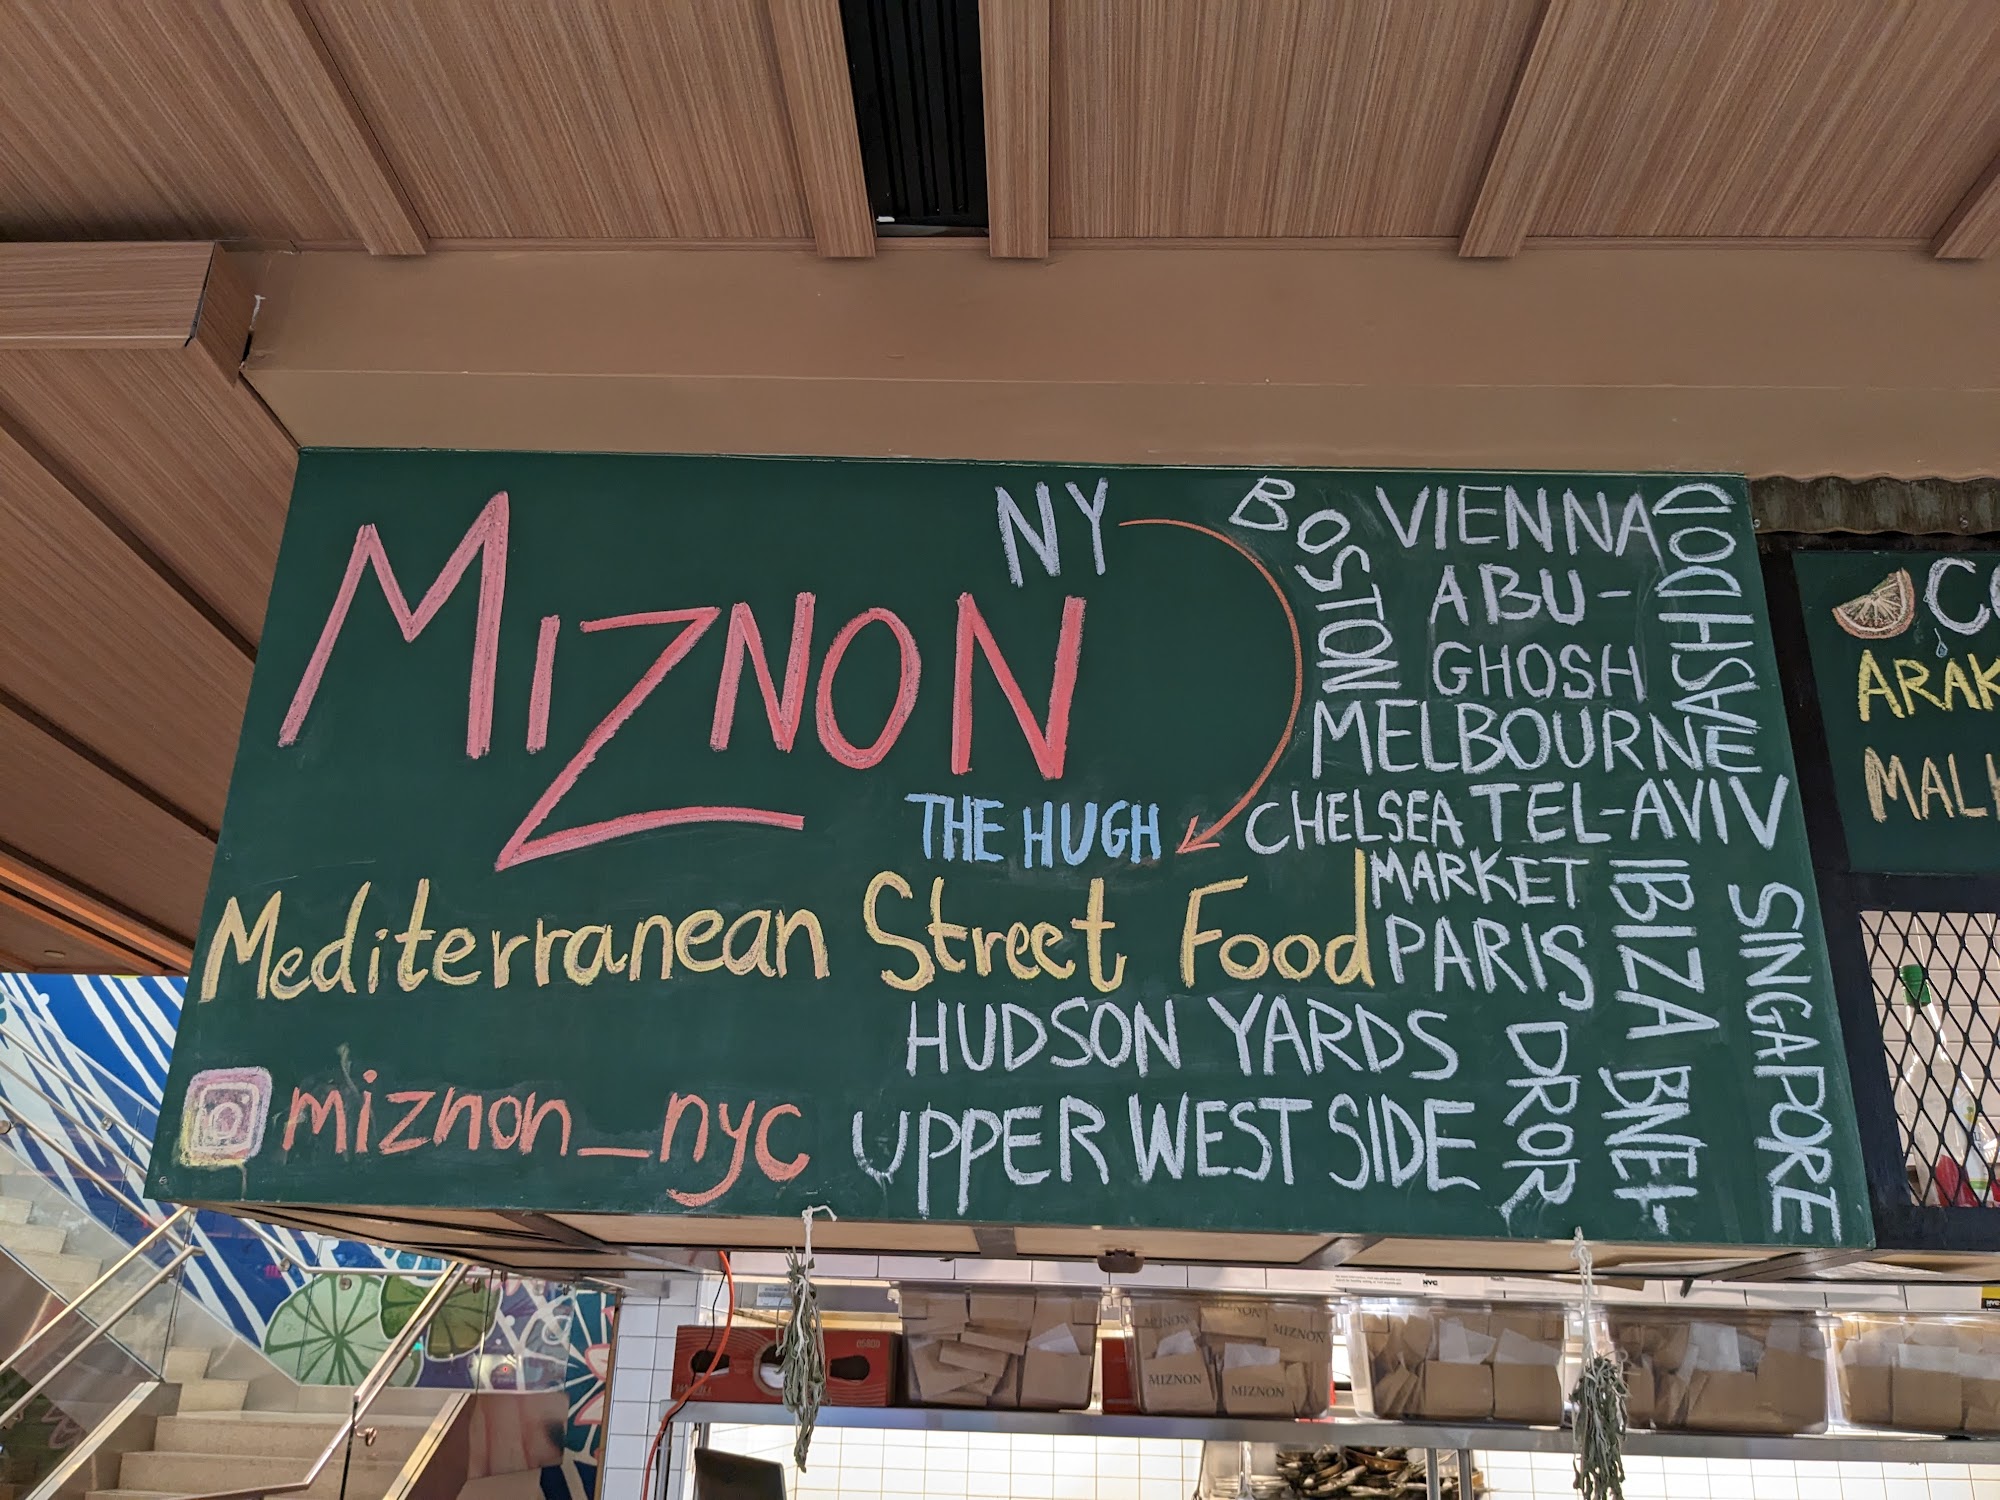 NY
MIZNON
THE HUGH
Mediterranean Street Food
miznon_nyc
BOSTON
VIENNA
ABU-
GHOSH
MELBOURNE
CHELSEA
MARKET
TEL-AVIV
PARIS
HUDSON YARDS
UPPER WEST SIDE
DROR
IBIZA BNEI-
HASHDOD
SINGAPORE
ARAK
MIZNON
MIZNON
MIZNON
MIZNON
NYC